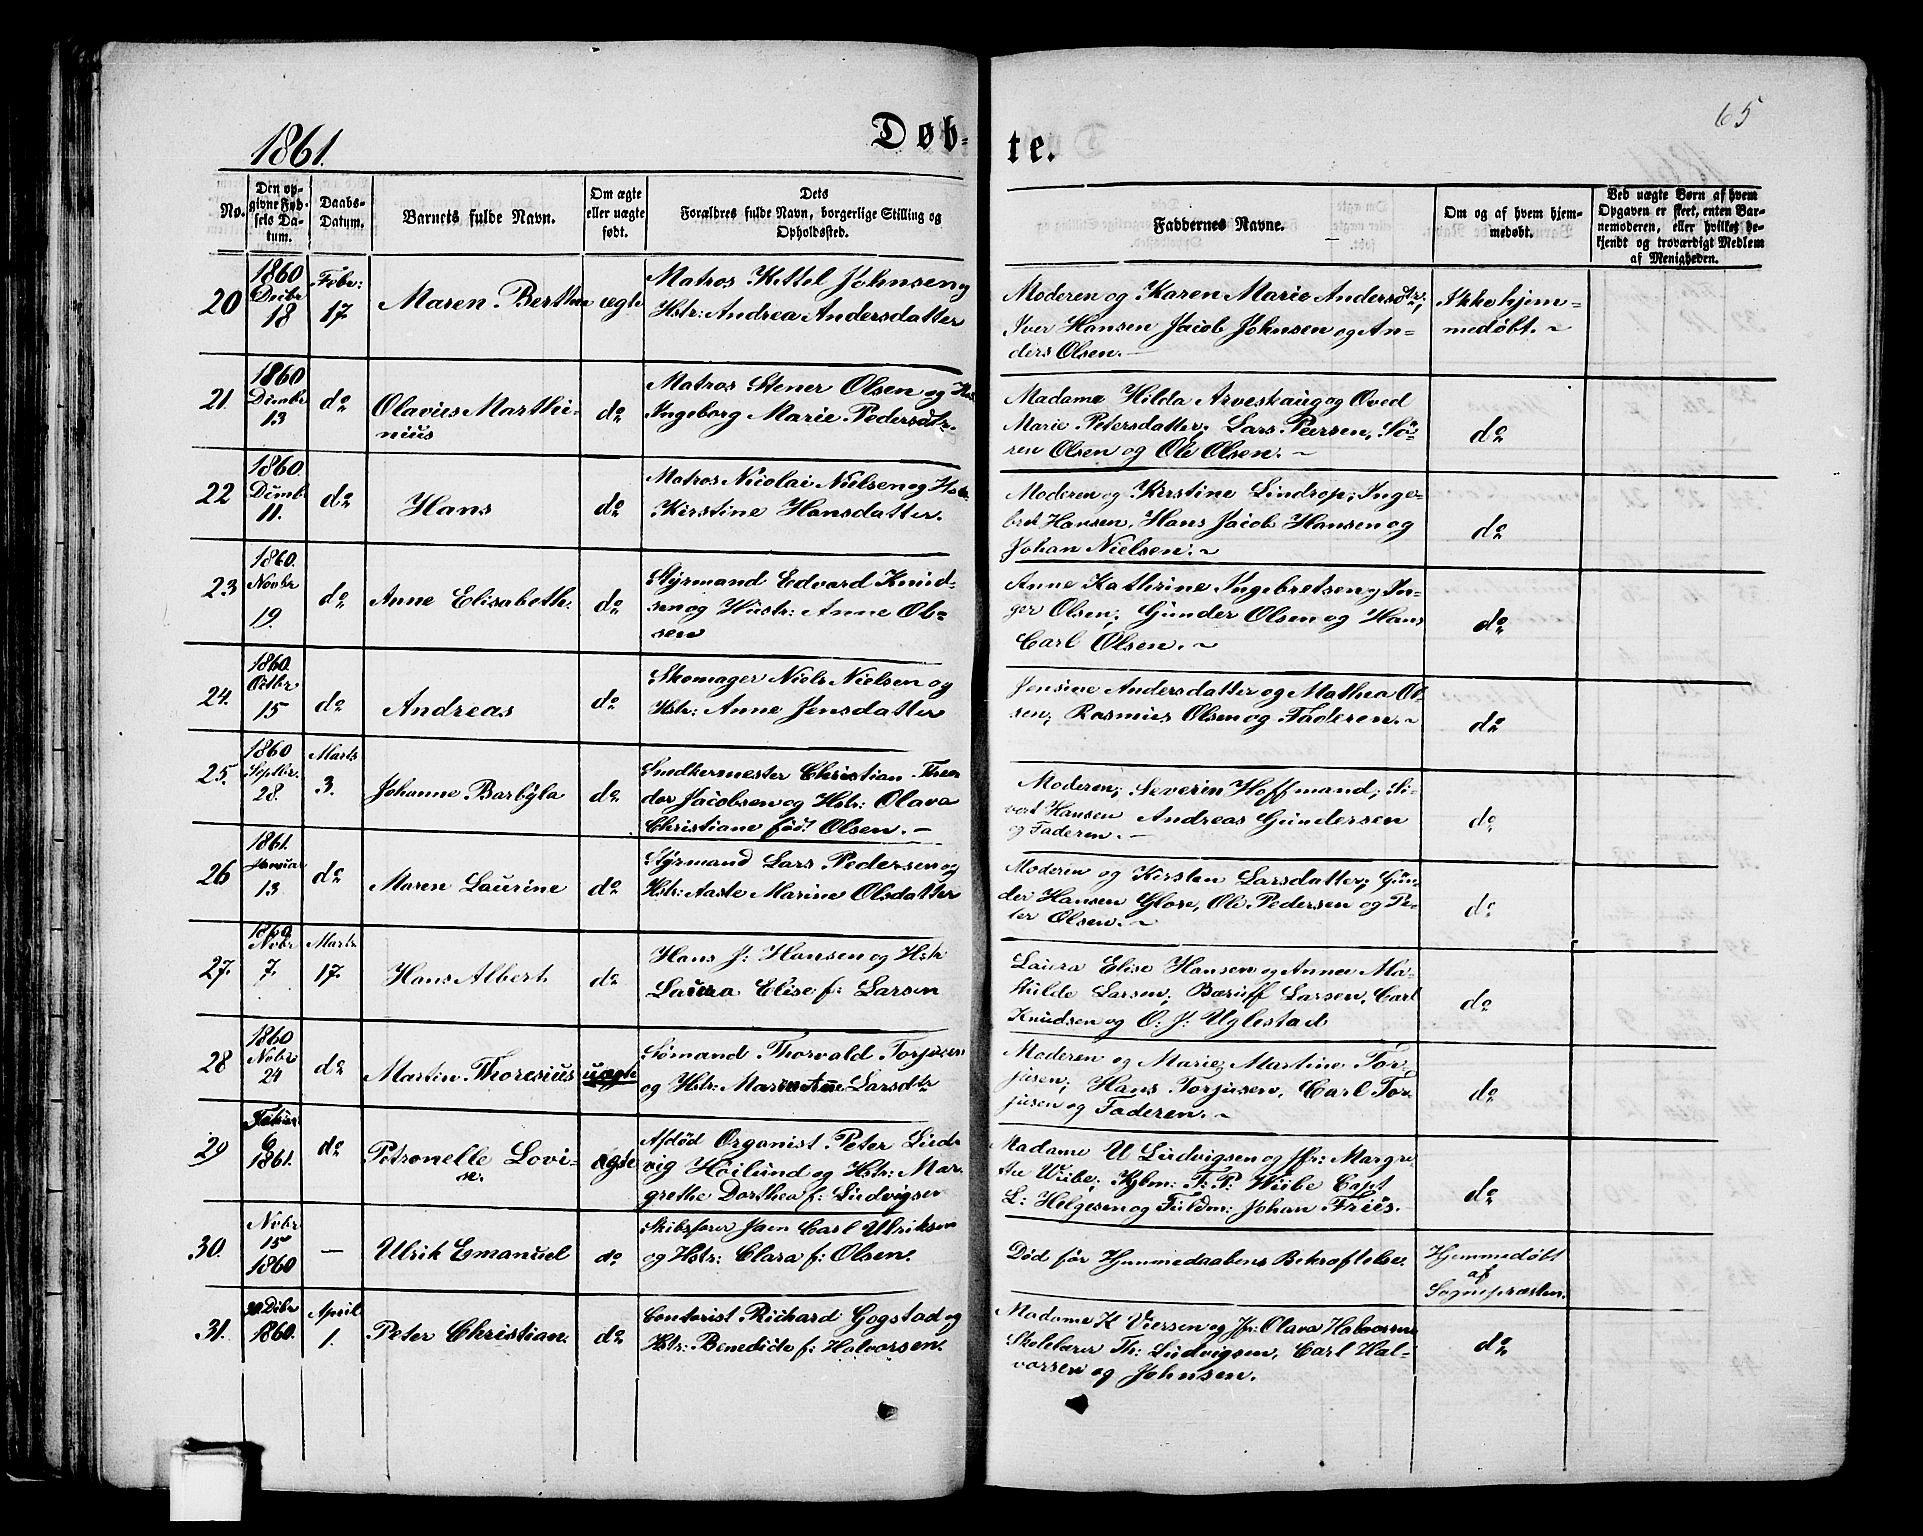 1861.
Døb-
te.
65
No.
Den op-
givne Fød-
sels Da-
tum.
Daabs-
Datum.
Barnets fulde Navn.
Om ægte
eller uægte
født.
Dets
Forældres fulde Navn, borgerlige Stilling og
Opholdssted.
Faddernes Navne.
Om og af hvem hjem-
medøbt.
Ved uægte Børn af hvem
Opgaven er skeet, enten Bar-
nemoderen, eller hvilket be-
kjendt og troværdigt Medlem
af Menigheden.
20
1860
Decbr
18
Febr:
17.
Maren Berthea
ægte
Matros Kittel Johnsen og
Hstr: Andrea Andersdatter
Moderen og Karen Marie Andersdtr;
Iver Hansen Jacob Johnsen og An-
ders Olsen. –
Ikke hjem-
medøbt. ~
21.
1860
Decmbr
13
do
Olavius Marthi-
nius
do
Matros Stener Olsen og Hs.
Ingeborg Marie Pedersdtr.
Madame Hilda Arveskaug og Oved
Marie Petersdatter. Lars Peersen, Sö-
ren Olsen og Ole Olsen. ~
do
22
1860
Dcmb.
11.
do
Hans
do
Matros Nicolai Nielsen og Hstr.
Kirstine Hansdatter.
Moderen og Kirstine Lindrop; Inge-
bret Hansen, Hans Jacob Hansen og
Johan Nielsen. ~
do
23
1860.
Novbr
19.
do
Anne Elisabeth.
do
Styrmand Edvard Knud-
sen og Hustr: Anne Ol-
sen
Anne Kathrine Ingebretsen og In-
ger Olsen; Gunder Olsen og Hans
Carl Olsen. ~
do
24.
1860.
Octbr
15
do
Andreas
do
Skomager Niels Nielsen og
Hstr: Anne Jensdatter
Jensine Andersdatter og Mathea Ol-
sen; Rasmus Olsen og Faderen. ~
do
25.
1860
Septbr.
28.
Marts
3.
Johanne Barbyla
do
Snedkermester Christian Theo
dor Jacobsen og Hstr: Olava
Christiane født Olsen. –
Moderen; Severin Hoffmand; Si-
vert Hansen Andreas Gundersen
og Faderen. –
do
26
1861.
Januar
13
do
Maren Laurine
do
Styrmand Lars Pedersen og
Hstr: Aaste Marine Olsdatter
Moderen og Kirsten Larsdatter; Gun-
der Hansen Glose, Ole Pedersen og Pe-
ter Olsen. ~
do
27.
1860
Novbr
7.
Marts
17.
Hans Albert
do
Hans J: Hansen og Hstr
Laura Elise f: Larsen
Laura Elise Hansen og Anne Ma-
thilde Larsen; Baruff Larsen, Carl
Knudsen og O. J. Uglestad
do
28
1860
Nobr
24
do
Martin Thoresius
uægte
Sømand Thorvald Torjusen
og Hstr: Maren Ane Larsdtr
Moderen og Marie Martine Tor-
jusen; Hans Torjusen, Carl Tor-
jusen og Faderen. ~
do
29
Febuar
6
1861.
do
Petronelle Lovi-
se.
ægte
Afdød Organist Peter Lud-
vig Höilund og Hstr: Mar-
grethe Dorthea f: Ludvigsen
Madame U Ludvigsen og Jfr: Margre-
the Wiibe; Kjbm: F: P: Wiibe Capt
L: Helgesen og Fuldm: Johan Friis.
do
30.
Nobr
15
1860
–
Ulrik Emanuel
do
Skibsfører Joen Carl Ulriksen
og Hstr: Clara f: Olsen.
Död før Hjemmedaabens Bekræftelse.
Hjemmedøbt
af
Sognepræsten.
31.
30. Decbr
1860.
April
1.
Peter Christian.
do
Contorist Richard Gogstad og
Hstr: Benedicte f: Halvorsen.
Madame K Viersen og Jfr: Olava Halvorsen
Skolelærer Th: Ludvigsen, Carl Hal-
vorsen og Johnsen.
do